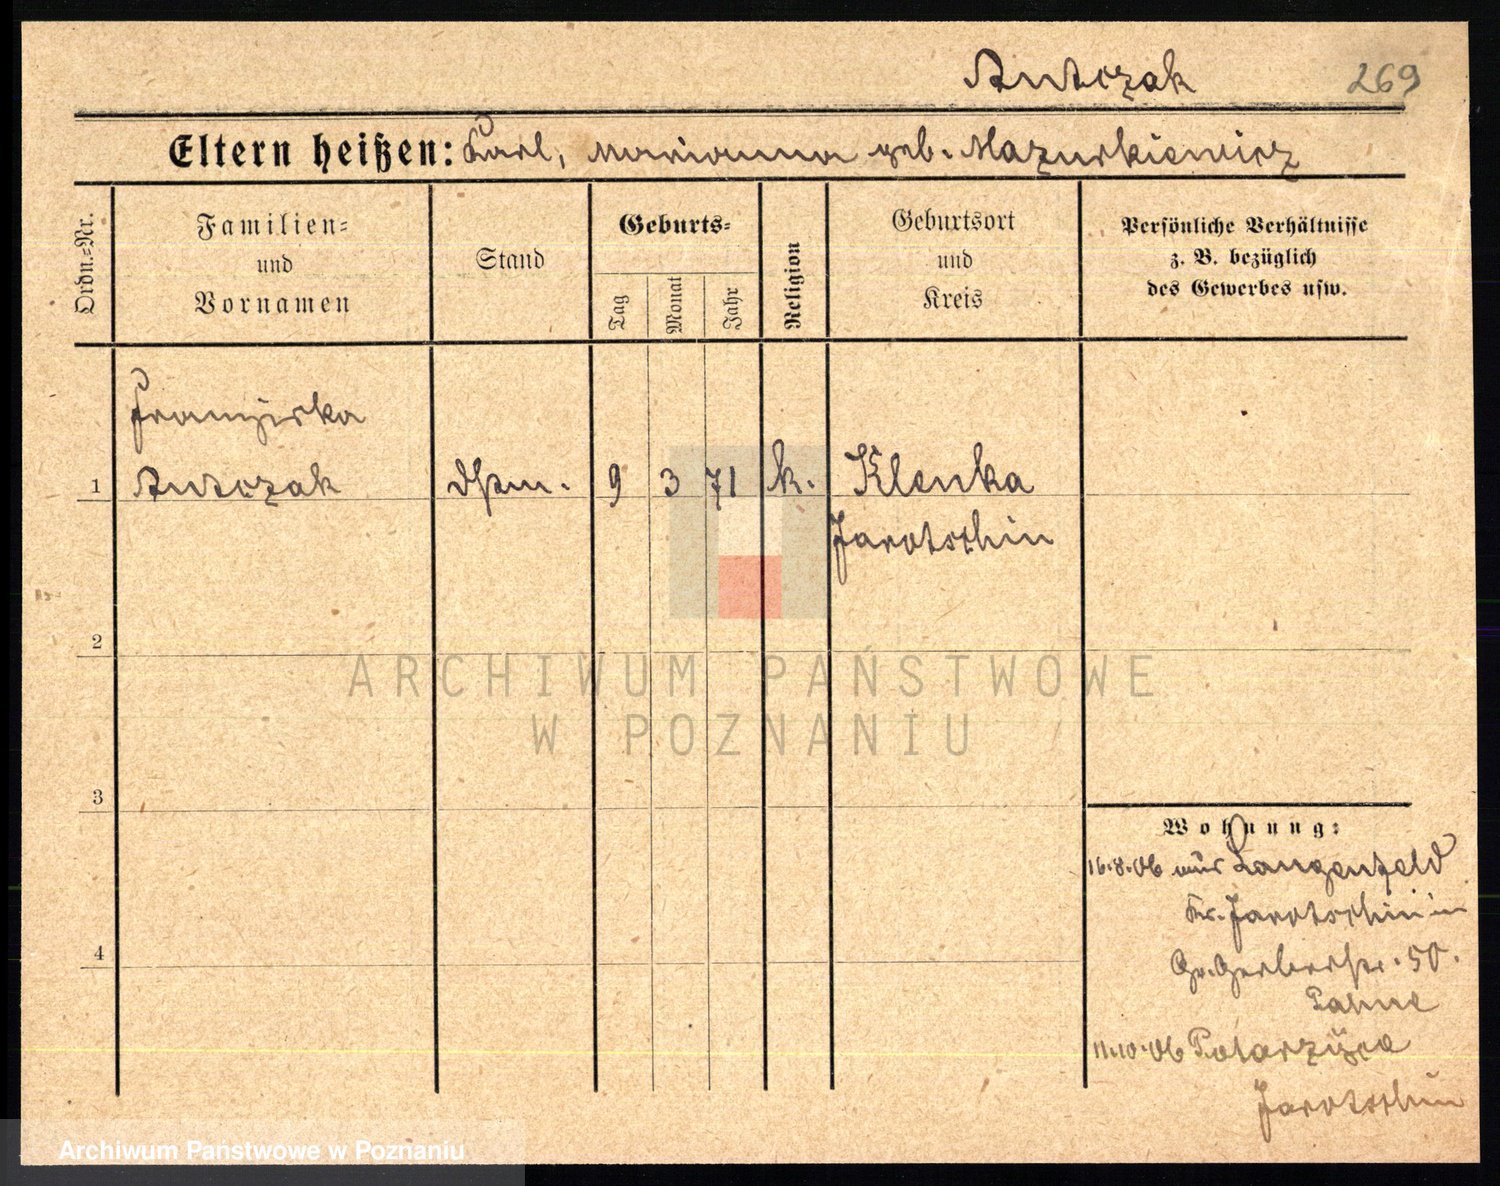 Antczak 269
Eltern heißen: Karl, Marianna geb. Mazurkiewicz
Ordn.=Nr.
Familien=
und
Vornamen
Stand
Geburts=
Tag
Monat
Jahr
Religion
Geburtsort
und
Kreis
Persönliche Verhältnisse
z. B. bezüglich
des Gewerbes usw.
Franziska
1 Antczak 9 3 71 k. Klenka
Jarotschin
2
ARCHIWUM PAŃSTWOWE
W POZNANIU
3
Wohnung:
16.8.06 aus Langenfeld
Kr. Jarotschin in
4 Gr. Gerberstr. 50.
11.10.06 Potarzyce
Jarotschin
Archiwum Państwowe w Poznaniu